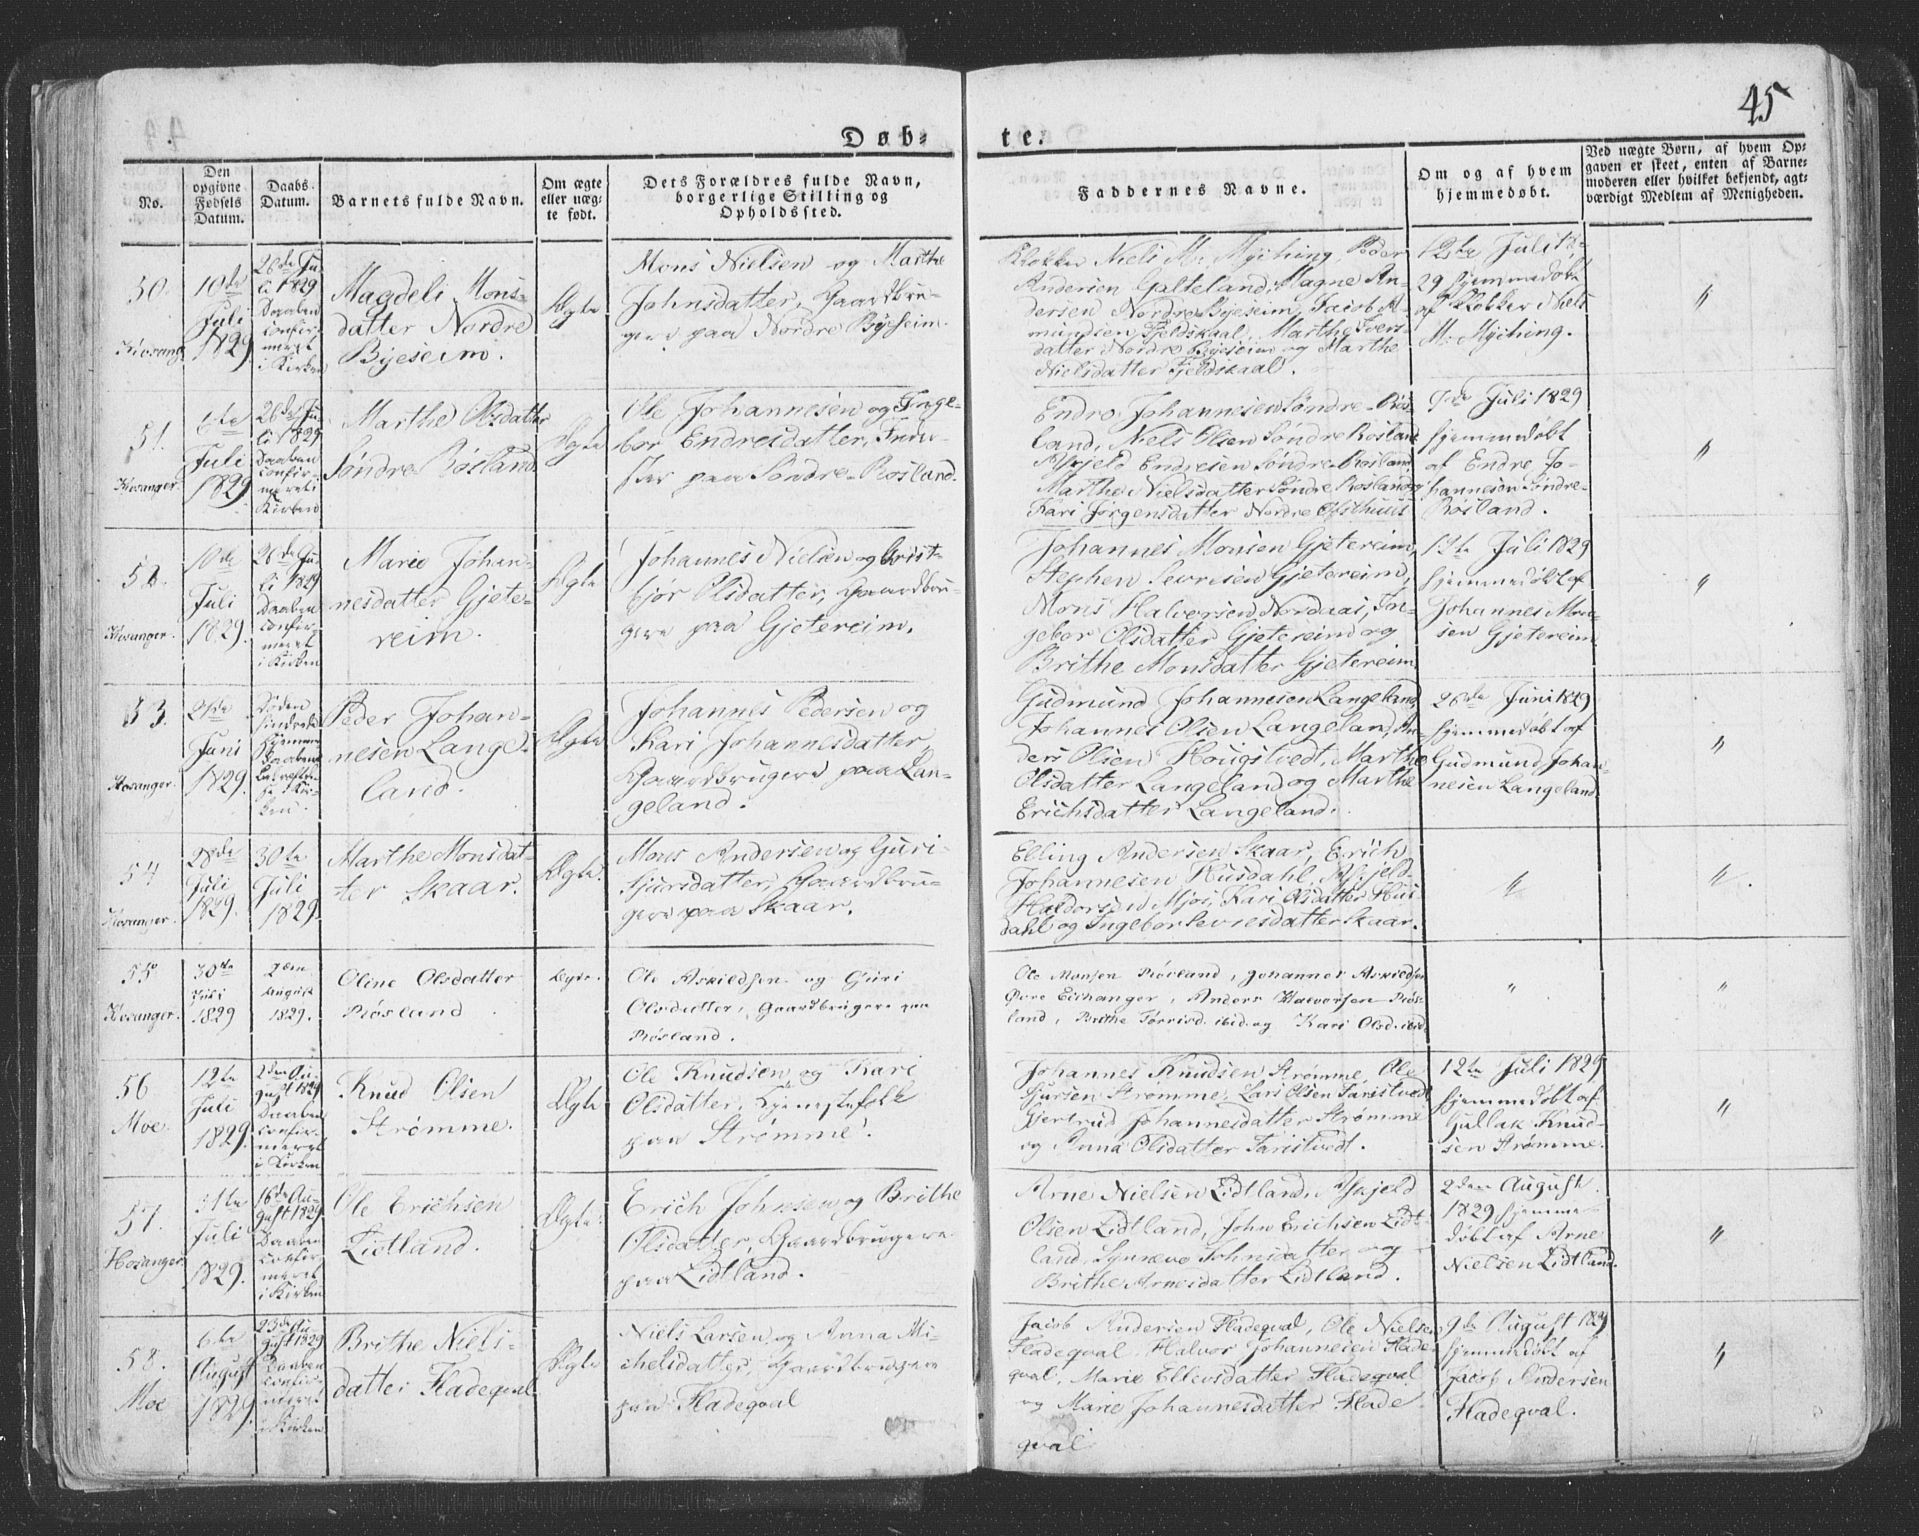 45
Døb-
te.
No.
Den
opgivne
Fødsels
Datum.
Daabs-
Datum.
Barnets fulde Navn.
Om ægte
eller uæg-
te født.
Dets Forældres fulde Navn,
borgerlige Stilling og
Opholdssted.
Faddernes Navne.
Om og af hvem
hjemmedøbt.
Ved uægte Børn, af hvem Op-
gaven er skeet, enten af Barne-
moderen eller hvilket bekjendt, agt-
værdigt Medlem af Menigheden.
50.
10de
Juli
1829.
26de Ju-
li 1829
Daaben
confir-
meret
i Kirken
Magdeli Mons-
datter Nordre
Byeseim.
Ægte
Mons Nielsen og Marthe
Johnsdatter, Gaardbru-
gere paa Nordre Byeseim.
Klokker Niels M. Myhing, Peder
Andersen Galteland, Magne An-
dersen Nordre Byeseim, Jacob A-
mundsen Fjeldskaal, Marthe Ivers-
datter Nordre Byeseim og Marthe
Nielsdatter Fjeldskaal.
12te Juli 18-
29 hjemmedøbt
af Klokker Niels
M. Myhing.
"
51.
Hosanger.
6te
Juli
1829
26de Ju-
li 1829
Daaben
confir-
meret i
Kirken
Marthe Olsdatter
Søndre Røsland
Ægte
Ole Johannesen og Inge-
bor Endresdatter, Indu-
ster paa Søndre-Røsland.
Endre Johannesen Søndre-Røs-
land, Niels Olsen Søndre Røsland
Askjeld Endresen Søndre-Røsland,
Marthe Nielsdatter Søndre Røsland og
Kari Jørgensdatter Nordre Ofsthuus
9de Juli 1829
hjemmedøbt
af Endre Jo-
hannesen Søndre-
Røsland.
"
52.
Hosanger.
10de
Juli
1829.
26de Ju-
li 1829
Daaben
confir-
meret
i Kirken
Marie Johan-
nesdatter Gjete-
reim.
Ægte
Johannes Nielsen og Brist-
bjør Olsdatter, Gaardbru-
gere paa Gjetereim.
Johannes Monsen Gjetereim,
Stephen Sevrisen Gjetereim,
Mons Halversen Nordaas, In-
gebor Olsdatter Gjetereim og
Brithe Monsdatter Gjetereim
12te Juli 1829
hjemmedøbt af
Johannes Mon-
sen Gjetereim
"
53.
Hosanger.
Juni
1829.
Peder Johan-
nesen Lange-
land.
Ægte
Johannes Pedersen og
Kari Johannesdatter,
Gaardbrugere paa Lan-
geland.
Gudmund Johannesen Langeland
Johannes Olsen Langeland, An-
ders Olsen Hougstvedt, Marthe
Olsdatter Langeland og Marthe
Erichsdatter Langeland.
26de Juni 1829
hjemmedøbt af
Gudmund Johan-
nesen Langeland
"
54
Hosanger.
28de
Juli
1829.
30te
Juli
1829.
Marthe Monsdat-
ter Skaar.
Ægte.
Mons Andersen og Guri-
Sjursdatter, Gaardbru-
gere paa Skaar.
Elling Andersen Skaar, Erich
Johannesen Husdahl, Askjeld
Haldorsen Mjøs, Kari Olsdatter Hus-
dahl og Ingebor Sevresdatter Skaar.
"
"
55
Hosanger.
30te
Juli
1829
2den
August
1829.
Oline Olsdatter
Røsland
Ægte.
Ole Askildsen og Guri
Olsdatter, Gaardbrugere paa
Røsland.
Ole Monsen Røsland, Johannes Askildsen
Øvre Eichanger, Anders Halvorsen Røs-
land, Brithe Torrisd. ibid. og Kari Olsd. ibid.
"
"
56
Moe.
12te
Juli
1829.
2den Au-
gust 1829
Daaben
confir-
meret
i Kirken
Knud Olsen
Strømme.
Ægte
Ole Knudsen og Kari
Olsdatter, Tjenestefolk
paa Strømme.
Johannes Knudsen Strømme, Ole
Sjursen Strømme, Lars Olsen Taristvedt
Gjertrud Johannesdatter Strømme
og Anna Olsdatter Taristvedt.
12te Juli 1829
hjemmedøbt af
Gullak Knud-
sen Strømme.
"
57.
Hosanger
31te
Juli
1829.
16de Au-
gust 1829
Daaben
confir-
meret
i Kirken
Ole Erichsen
Lidtland.
Ægte.
Erich Johnsen og Brithe
Olsdatter, Gaardbrugere
paa Lidtland.
Arne Nielsen Lidtland, Askjeld
Olsen Lidtland, John Erichsen Lidt-
land, Synneve Johnsdatter og
Brithe Arnesdatter Lidtland.
2den August
1829 hjemme-
døbt af Arne
Nielsen Lidtland.
"
58.
Moe
6te
August
1829.
23de Au-
gust 1829
Daaben
confir-
meret
i Kirken
Brithe Niels-
datter Fladeqval
Ægte
Niels Larsen og Anna Mi-
chelsdatter, Gaardbrugere
paa Fladeqval
Jacob Andersen Fladeqval, Ole Nielsen
Fladeqval, Halvor Johannesen Flade-
qval, Marie Ellevsdatter Fladeqval
og Marie Johannesdatter Flade-
qval
9de August 1829
hjemmedøbt af
Jacob Andersen
Fladeqval.
"